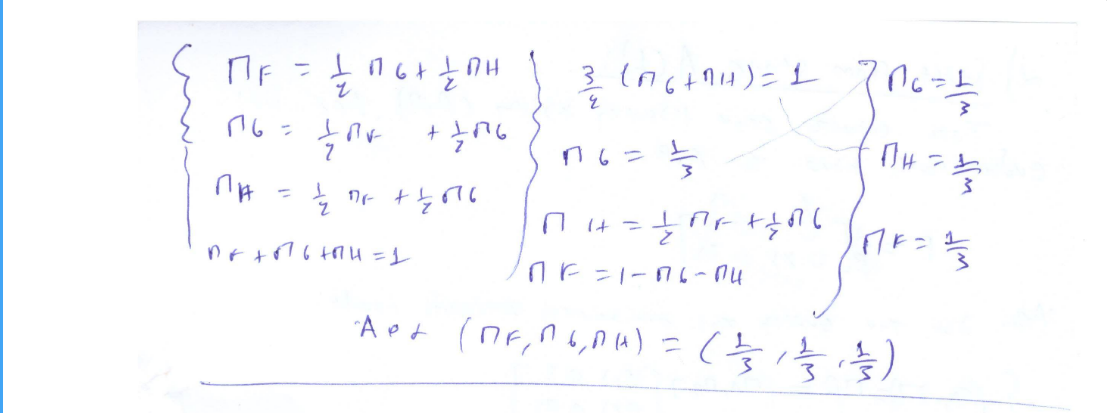 { ΠF = 1/2 ΠG + 1/2 ΠH
ΠG = 1/2 ΠF + 1/2 ΠG
ΠH = 1/2 ΠF + 1/2 ΠG
ΠF + ΠG + ΠH = 1
3/2 (ΠG + ΠH) = 1
ΠG = 1/3
ΠH = 1/2 ΠF + 1/2 ΠG
ΠF = 1 - ΠG - ΠH
ΠG = 1/3
ΠH = 1/3
ΠF = 1/3
Αρα (ΠF, ΠG, ΠH) = (1/3, 1/3, 1/3)